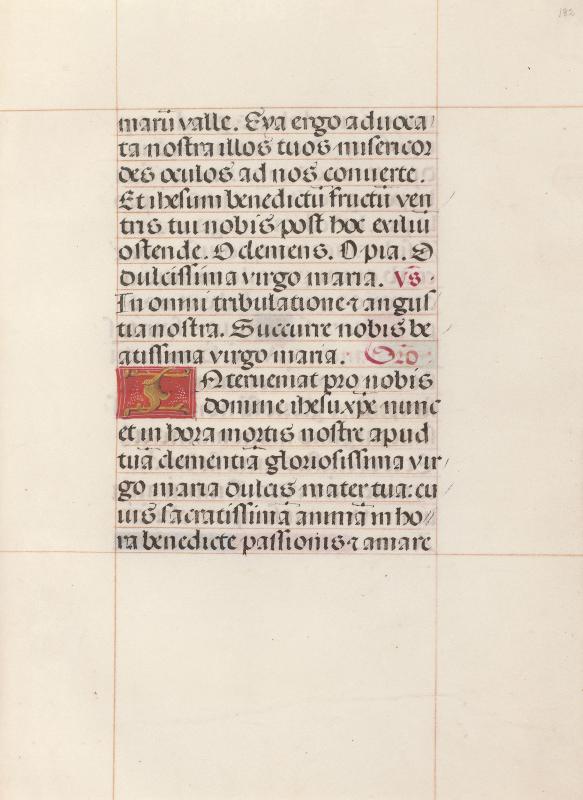 182
marū valle. Eya ergo aduoca
ta nostra illos tuos misericor
des oculos ad nos conuerte.
Et ihesum benedictū fructū ven
tris tui nobis post hoc exiliū
ostende. O clemens. O pia. O
dulcissima virgo maria. Vs
In omni tribulatione ⁊ angus
tia nostra. Succurre nobis be
atissima virgo maria. Orō
INterueniat pro nobis
domine ihesu xp̄e nunc
et in hora mortis nostre apud
tuā clementiā gloriosissima vir
go maria dulcis mater tua: cu
ius sacratissimā animā in ho
ra benedicte passionis ⁊ amare